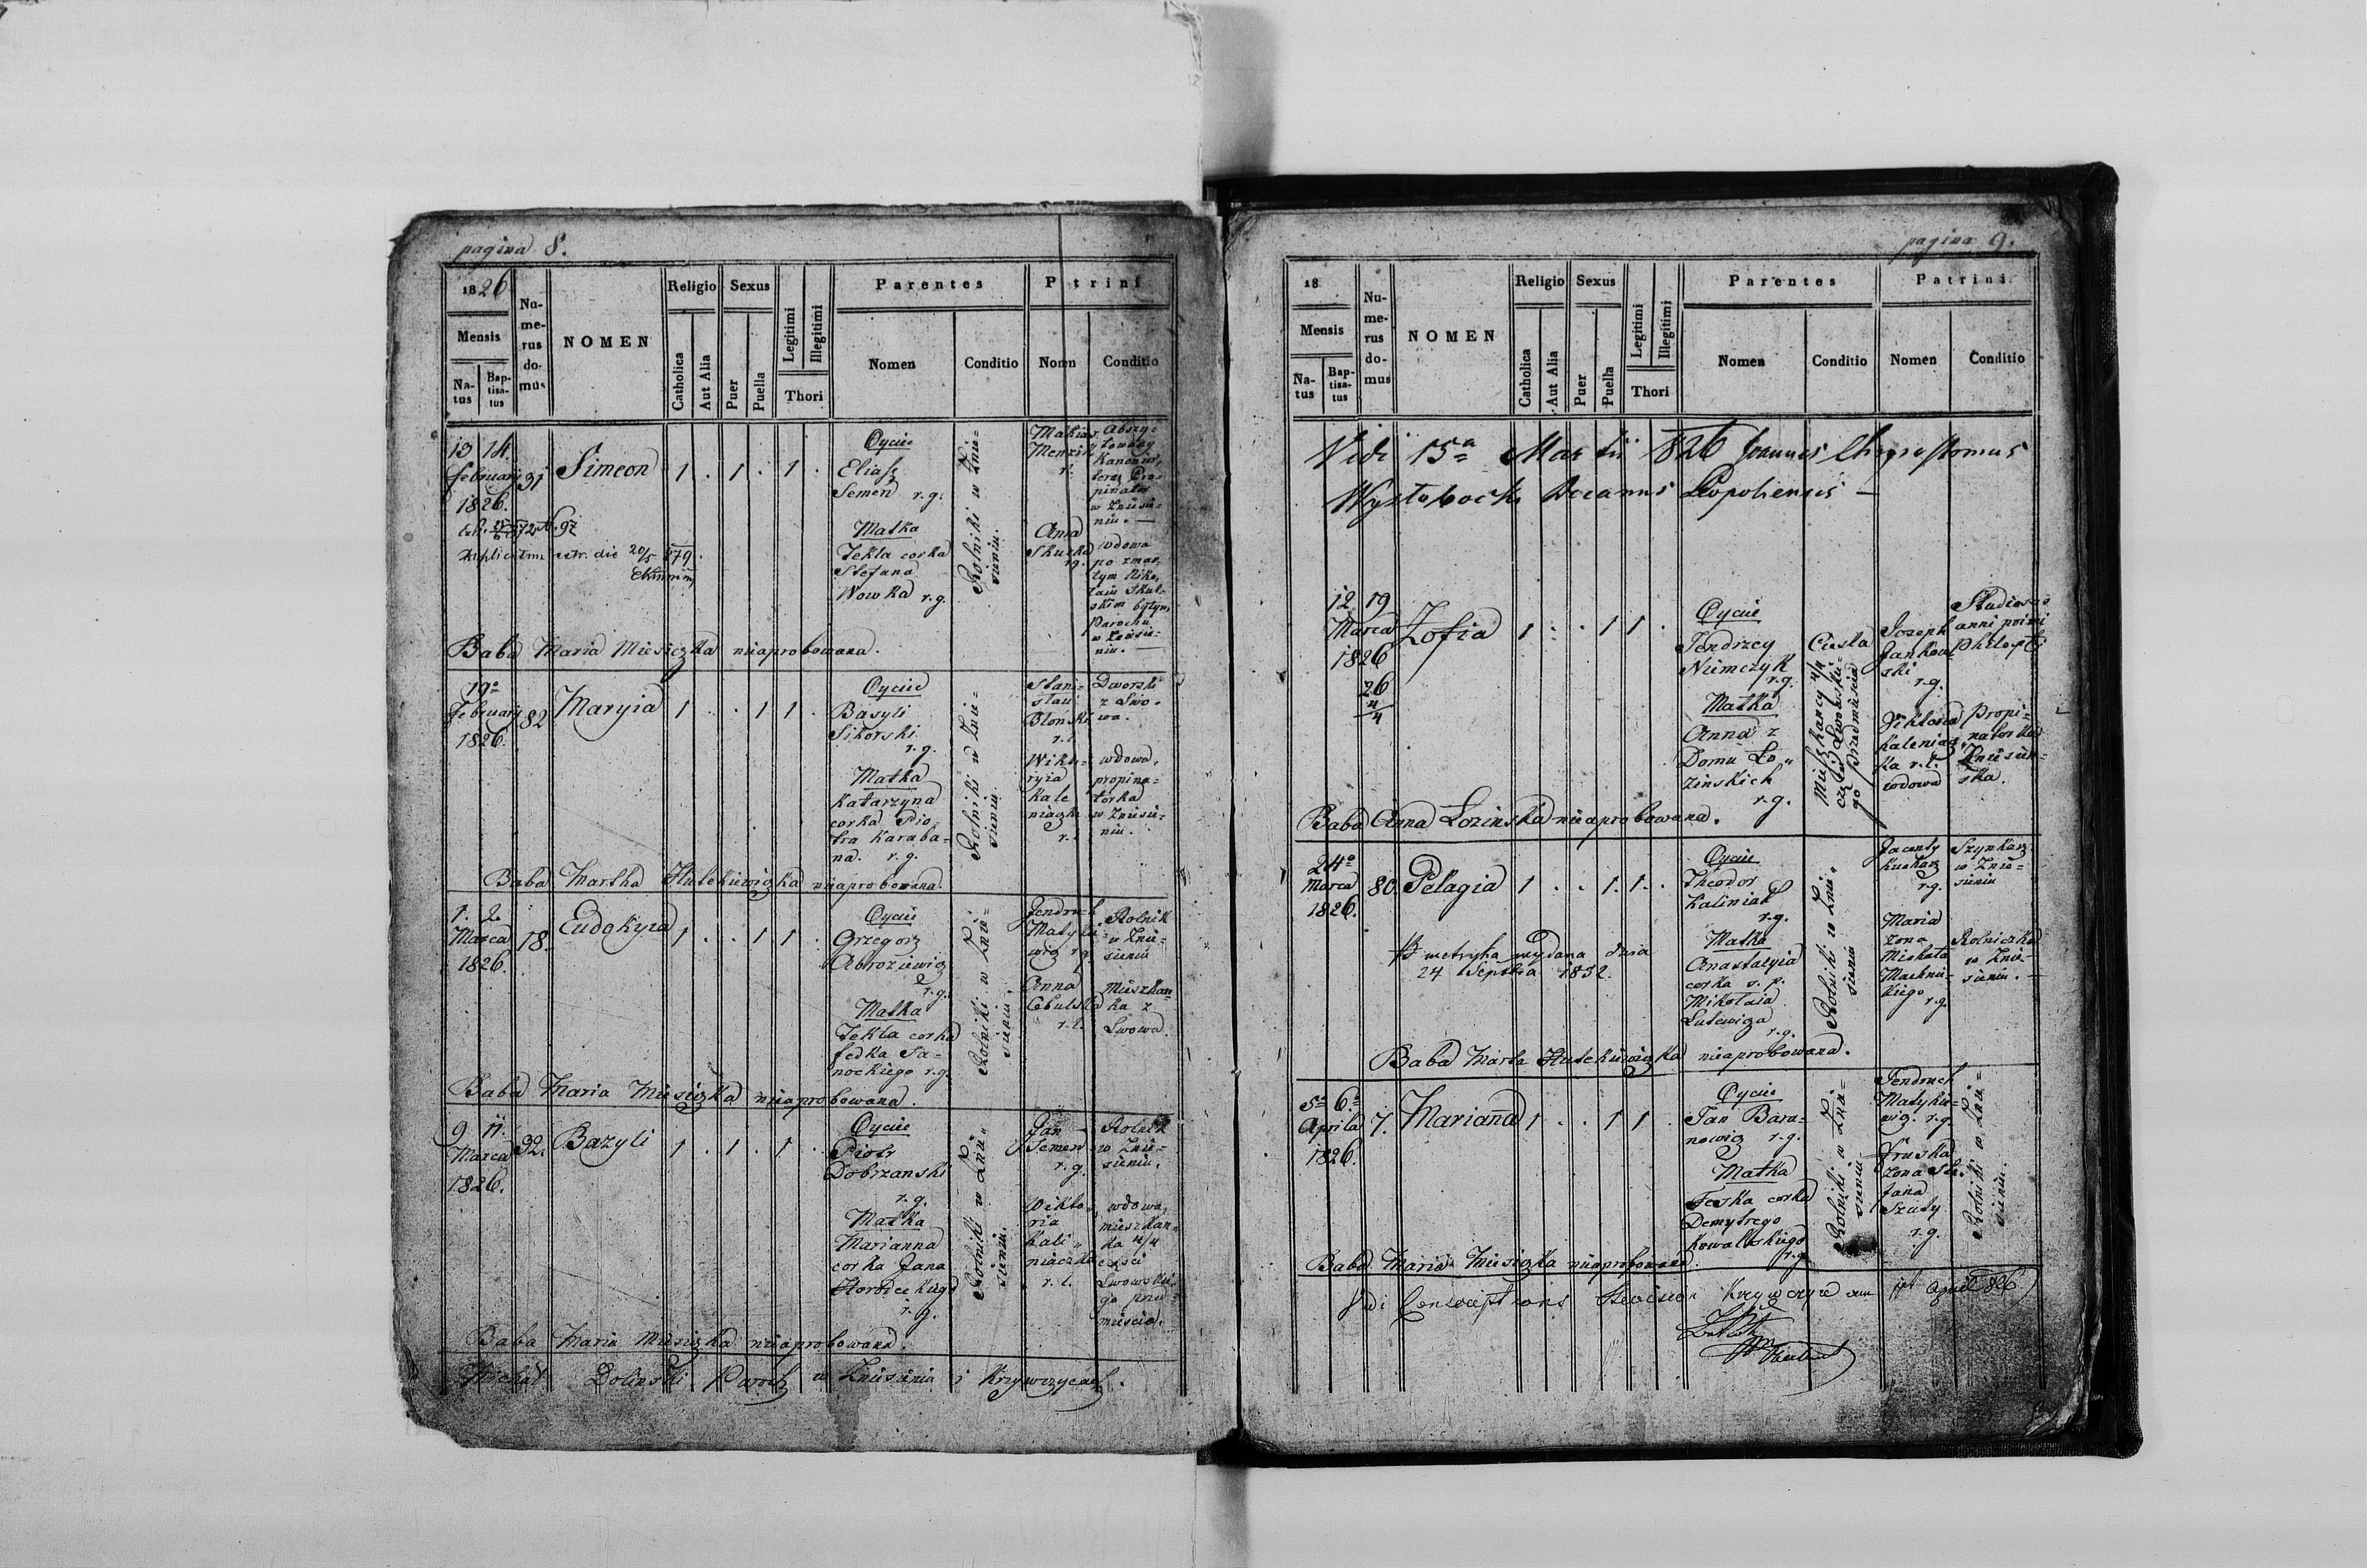 pagina 8.
1826
Mensis
Na-
tus
Bap-
tisa-
tus
Nu-
me-
rus
do-
mus
NOMEN
Religio
Catholica
Aut Alia
Sexus
Puer
Puella
Legitimi
Illegitimi
Thori
Parentes
Nomen
Conditio
Patrini
Nomen
Conditio
13 14.
february
1826.
31
Simeon
1 . 1 . 1 .
Oycie
Eliasz
Semen r.g.
Matka
Tekla corka
Stefana
Wowka r.g.
Rolniki w Znie=
sieniu.
Menzik
r.l.
Anna
r.g.
Kanonier,
teraz Pro-
pinator
w Zniesie-
niu. —
wdowa
po zmar-
tym Niko-
łaiu Skul-
skim byłym
Parochu
w Zniesie=
niu. —
Baba Maria Miesiczka nieaprobowana.
19a
february
1826.
82
Maryia
1 . . 1 1 .
Oycie
Basyli
Sikorski
r.g.
Matka
Katarzyna
corka Pio-
tra Karaba-
na. r.g.
Rolniki w Znie=
sieniu.
Stani=
sław
Blonski
r.l.
Wikto-
ryia
Kale
niaczka
r.l.
Dworski
z Lwo-
wa.
wdowa,
propina=
torka
w Zniesie-
niu.
Baba Martha Hutekiewiczka nieaprobowana.
1. 2.
Marca
1826.
18.
Eudokyia
1 . . 1 1 .
Oycie
Grzegorz
Abroziewicz
r.g.
Matka
Tekla corka
fedka Sa-
nockiego r.g.
Rolniki w Znie=
sieniu.
Jendruch
Matykie-
wicz r.g.
Anna
Cebulska
r.l.
Rolnik
w Znie-
sieniu
Mieszkan-
ka z
Lwowa.
Baba Maria Miesiczka nieaprobowana.
9. 11.
Marca
1826.
32.
Bazyli
1 . 1 . 1 .
Oycie
Piotr
Dobrzanski
r.g.
Matka
Marianna
corka Jana
Horodeckiego
r.g.
Rolniki w Znie=
sieniu.
Jan
Semen
r.g.
Wikto-
ria
Kali-
niaczka
r.l.
Rolnik
w Znie-
sieniu.
wdowa,
mieszkan-
ka 4/4
części
Lwowskie-
go przed-
mieścia.
Baba Maria Miesiczka nieaprobowana.
Michał Dolinski Paroch w Zniesieniu i Krzywczycach.
pagina 9.
18
Mensis
Na-
tus
Bap-
tisa-
tus
Nu-
me-
rus
do-
mus
NOMEN
Religio
Catholica
Aut Alia
Sexus
Puer
Puella
Legitimi
Illegitimi
Thori
Parentes
Nomen
Conditio
Patrini
Nomen
Conditio
Vidi 15a Martii 826 Joannes Chrysostomus
Decanus Leopoliensis —
12 19
Marca
1826
26
4
4
Zofia
1 . . 1 1 .
Oycie
Jendrzey
Niemczyk
r.g.
Matka
Anna z
Domu Ło-
zinskich
r.g.
Ciesla
Mieszkancy 4/4
części Lwowskie-
go przedmiescia
Joseph
Jankow-
ski
r.g.
Viktoria
Kaleniacz-
ka r.l.
wdowa
Studiosus
anni primi
Propi=
natorka
Zniesien-
ska.
Baba Anna Lozinska nieaprobowana.
24o
Marca
1826.
80.
Pelagia
1 . . 1. 1. .
metryka wydana dnia
24 Septbra 1852.
Oycie
Theodor
Kaliniak
r.g.
Matka
Anastazyia
corka s. p.
Mikołaia
Lutewicza
r.g.
Rolniki w Znie-
sieniu
Jacenty
Kucharz
r.g.
Maria
zona
Michała
Machnie-
kiego
r.g.
Szynkarz
w Znie-
sieniu
Rolniczka
w Znie-
sieniu. —
Baba Marta Hutekiewiczka nieaprobowana.
5a 6a
Aprila
1826.
7.
Marianna
1 . . 1 1 .
Oycie
Jan Bara-
nowicz r.g.
Matka
Feska corka
Demytrego
Kowalskiego
r.g.
Rolniki w Znie-
sieniu
Jendruch
Matykie-
wicz. r.g.
Hruska
zona
Jana
Szuty
r.g.
Rolniki w Znie=
sieniu.
Baba Maria Miesiczka nieaprobowana.